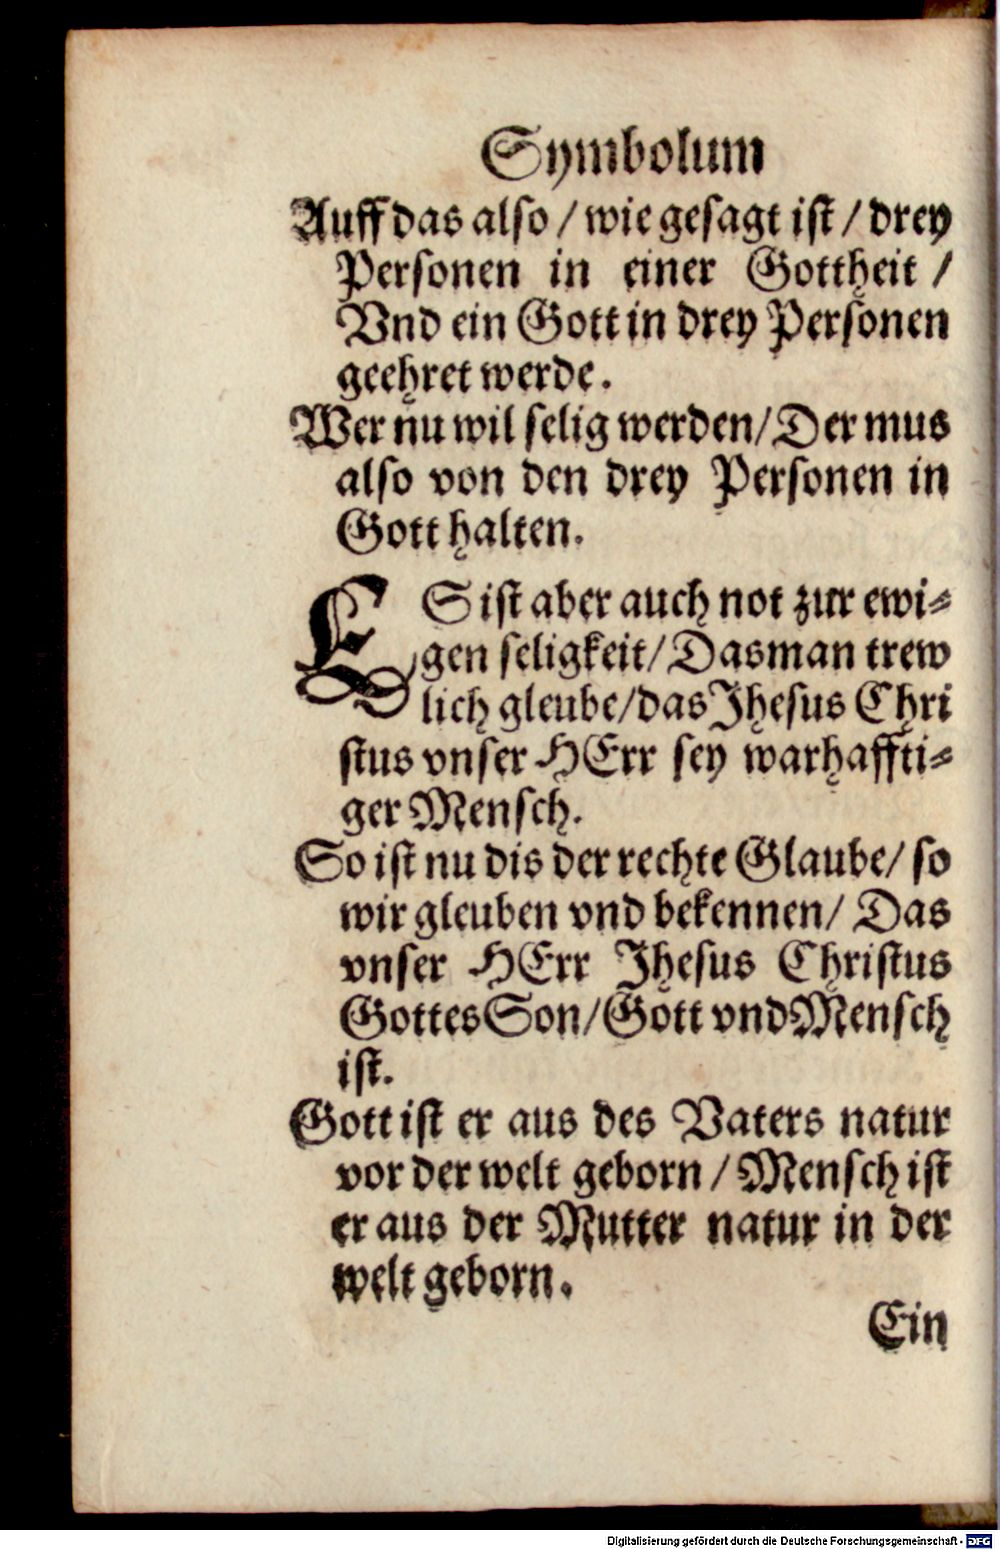 Symbolum
Auff das also / wie gesagt ist / drey
Personen in einer Gottheit /
Vnd ein Gott in drey Personen
geehret werde.
Wer nu wil selig werden / Der mus
also von den drey Personen in
Gott halten.
ES ist aber auch not zur ewi⸗
gen seligkeit / Das man trew
lich gleube / das Jhesus Chri
stus vnser HErr sey warhaffti⸗
ger Mensch.
So ist nu dis der rechte Glaube / so
wir gleuben vnd bekennen / Das
vnser HErr Jhesus Christus
Gottes Son / Gott vnd Mensch
ist.
Gott ist er aus des Vaters natur
vor der welt geborn / Mensch ist
er aus der Mutter natur in der
welt geborn.
Ein
Digitalisierung gefördert durch die Deutsche Forschungsgemeinschaft - DFG